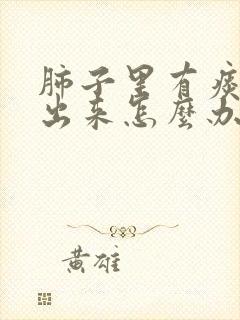 肺子里有痰
出来怎麽办
黄雄